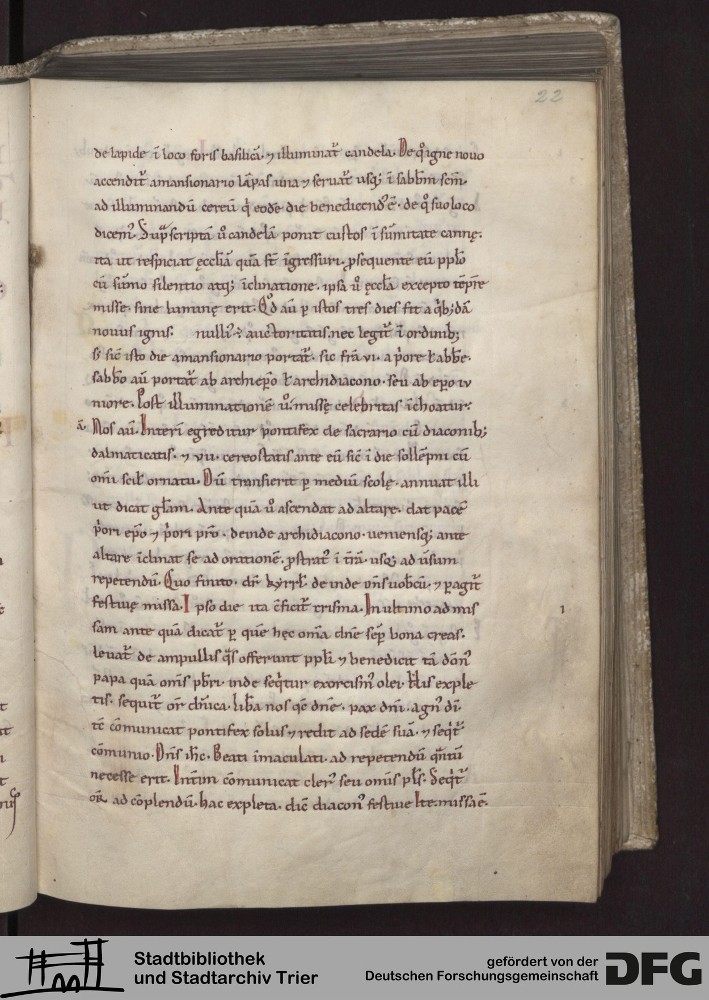 22
de lapide ī loco foris basilicā. ⁊ illuminat᷑ candela. De q̊ igne nouo
accendit᷑ amansionario lāpas una ⁊ seruat᷑ usq; ī sabbm̄ scm̄.
ad illuminandū cereū q̇ eodē die benedicend᷒ ē. de q̊ suo loco
dicem᷒. Sup̄scriptā ū candelā ponit custos ī sūmitate cannę.
ita ut respiciat ęcclīā quā st̄ īgressuri. ꝓsequente eū pplō
cū sūmo silentio atq; īclinatione. ipsa ū ęccl̄a excepto tēpr̄e
misse. sine lumine erit. Qd̄ aū p istos tres dies fit a q̇b;dā
nouus ignis. nulli᷒ ē auctoritatis. nec legit᷑ ī ordinib;
s; sic̄ isto die amansionario portat᷑. sic fr̄ia .vi. a ṗore ł abbē.
sabbō aū portat᷑ ab archiep̄o ł archidiacono. seu ab ep̄o iv
niore. Post illuminationē ū. missę celebritas īchoatur.
a᷑. Nos aū. Interī egreditur pontifex de sacrario cū diaconib;
dalmaticatis. ⁊ vii. cereostatis ante eū sic̄ ī die sollēpni cū
om̄i scil̄ ornatu. Dū transierit p mediū scolę. annuat illi
ut dicat gl̄am. Ante quā ū ascendat ad altare. dat pacē
ṗori ep̄o ⁊ ṗori pr̄o. deinde archidiacono. ueniensq; ante
altare īclinat se ad orationē. ꝓstrat᷒ ī tr̄a. usq; ad ūsum
repetendū. Quo finito. dr̄ kyrrł. de inde Dn̄s uobcū. ⁊ pagit᷑
festiuę missa. Ipso die ita c̄ficit᷑ crisma. In ultimo ad mis
sam ante quā dicat᷑ p quē hęc om̄a dn̄e sep̄ bona creas.
leuat᷑ de ampullis q̄s offerunt ppl̄i ⁊ benedicit tā dōn᷒
papa quā om̄s pb̄ri. inde seq̇tur exorcism᷒ olei. His exple
tis. sequit᷑ or̄ dn̄ica. lib̄a nos qs̄ dn̄e. pax dn̄i. agn᷒ dī.
tc̄ cōmunicat pontifex solus ⁊ redit ad sedē suā. ⁊ seq̇t᷑
cōmunio. Dn̄s ih̄c. Beati īmaculati. ad repetendū q̇ntū
necesse erit. Int̄im cōmunicat cler᷒ seu om̄is pl̄s. Seq̇t᷑
or̄ ad cōplendū. hac expleta. dic̄ diacon᷒ festiue Ite. missa ē.
1
Stadtbibliothek
und Stadtarchiv Trier
gefördert von der
Deutschen Forschungsgemeinschaft
DFG